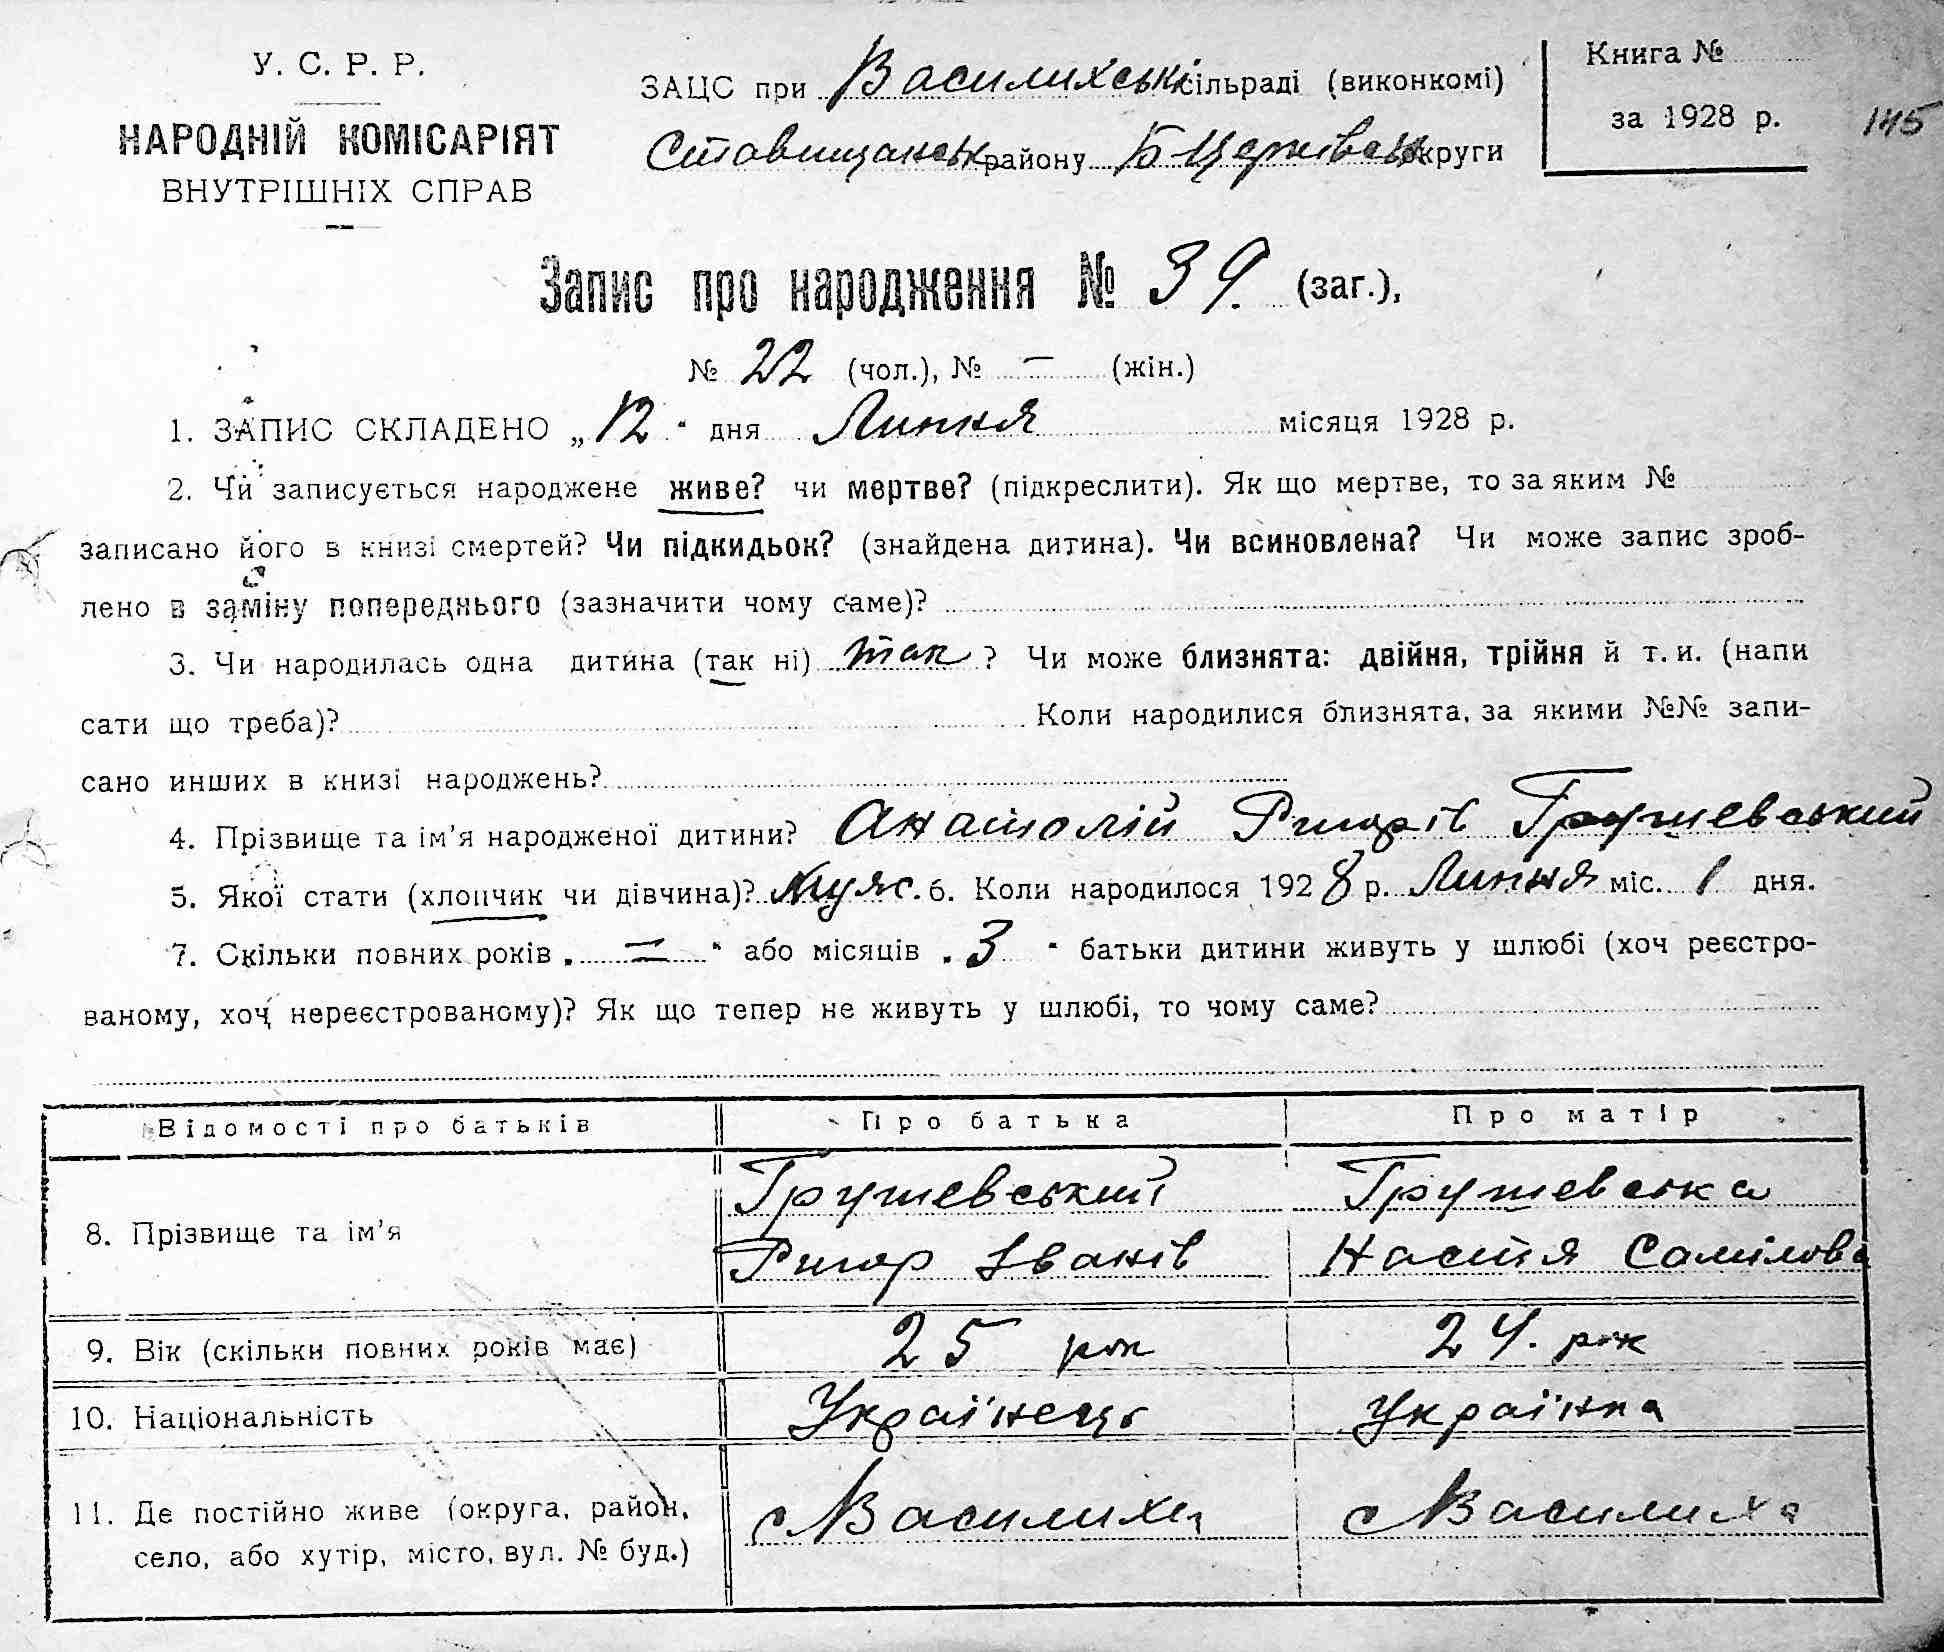 У. С. Р. Р.
НАРОДНІЙ КОМІСАРІЯТ
ВНУТРІШНІХ СПРАВ
ЗАЦС при Василихські сільраді (виконкомі)
Ставищанськ району Б Церківськ округи
Книга №
за 1928 р.
145
Запис про народження № 39. (заг.),
№ 22 (чол.), № – (жін.)
1. ЗАПИС СКЛАДЕНО „12" дня Липня місяця 1928 р.
2. Чи записується народжене живе? чи мертве? (підкреслити). Як що мертве, то за яким №
записано його в книзі смертей? Чи підкидьок? (знайдена дитина). Чи всиновлена? Чи може запис зроб-
лено в заміну попереднього (зазначити чому саме)?
3. Чи народилась одна дитина (так ні) так ? Чи може близнята: двійня, трійня й т. и. (напи
сати що треба)? Коли народилися близнята, за якими №№ запи-
сано инших в книзі народжень?
4. Прізвище та ім'я народженої дитини? Анатолій Ригорів Грушевський
5. Якої стати (хлопчик чи дівчина)? Муж. 6. Коли народилося 1928 р. Липня міс. 1 дня.
7. Скільки повних років „ — " або місяців „ 3 " батьки дитини живуть у шлюбі (хоч реєстро-
ваному, хоч нереєстрованому)? Як що тепер не живуть у шлюбі, то чому саме?
Відомості про батьків Про батька Про матір
8. Прізвище та ім'я
Грушевський
Ригор Іванів
Грушевська
Настя Самілова
9. Вік (скільки повних років має) 25 рок 24. рок
10. Національність Українець Українка
11. Де постійно живе (округа, район,
село, або хутір, місто, вул. № буд.)
с Василиха
с Василиха